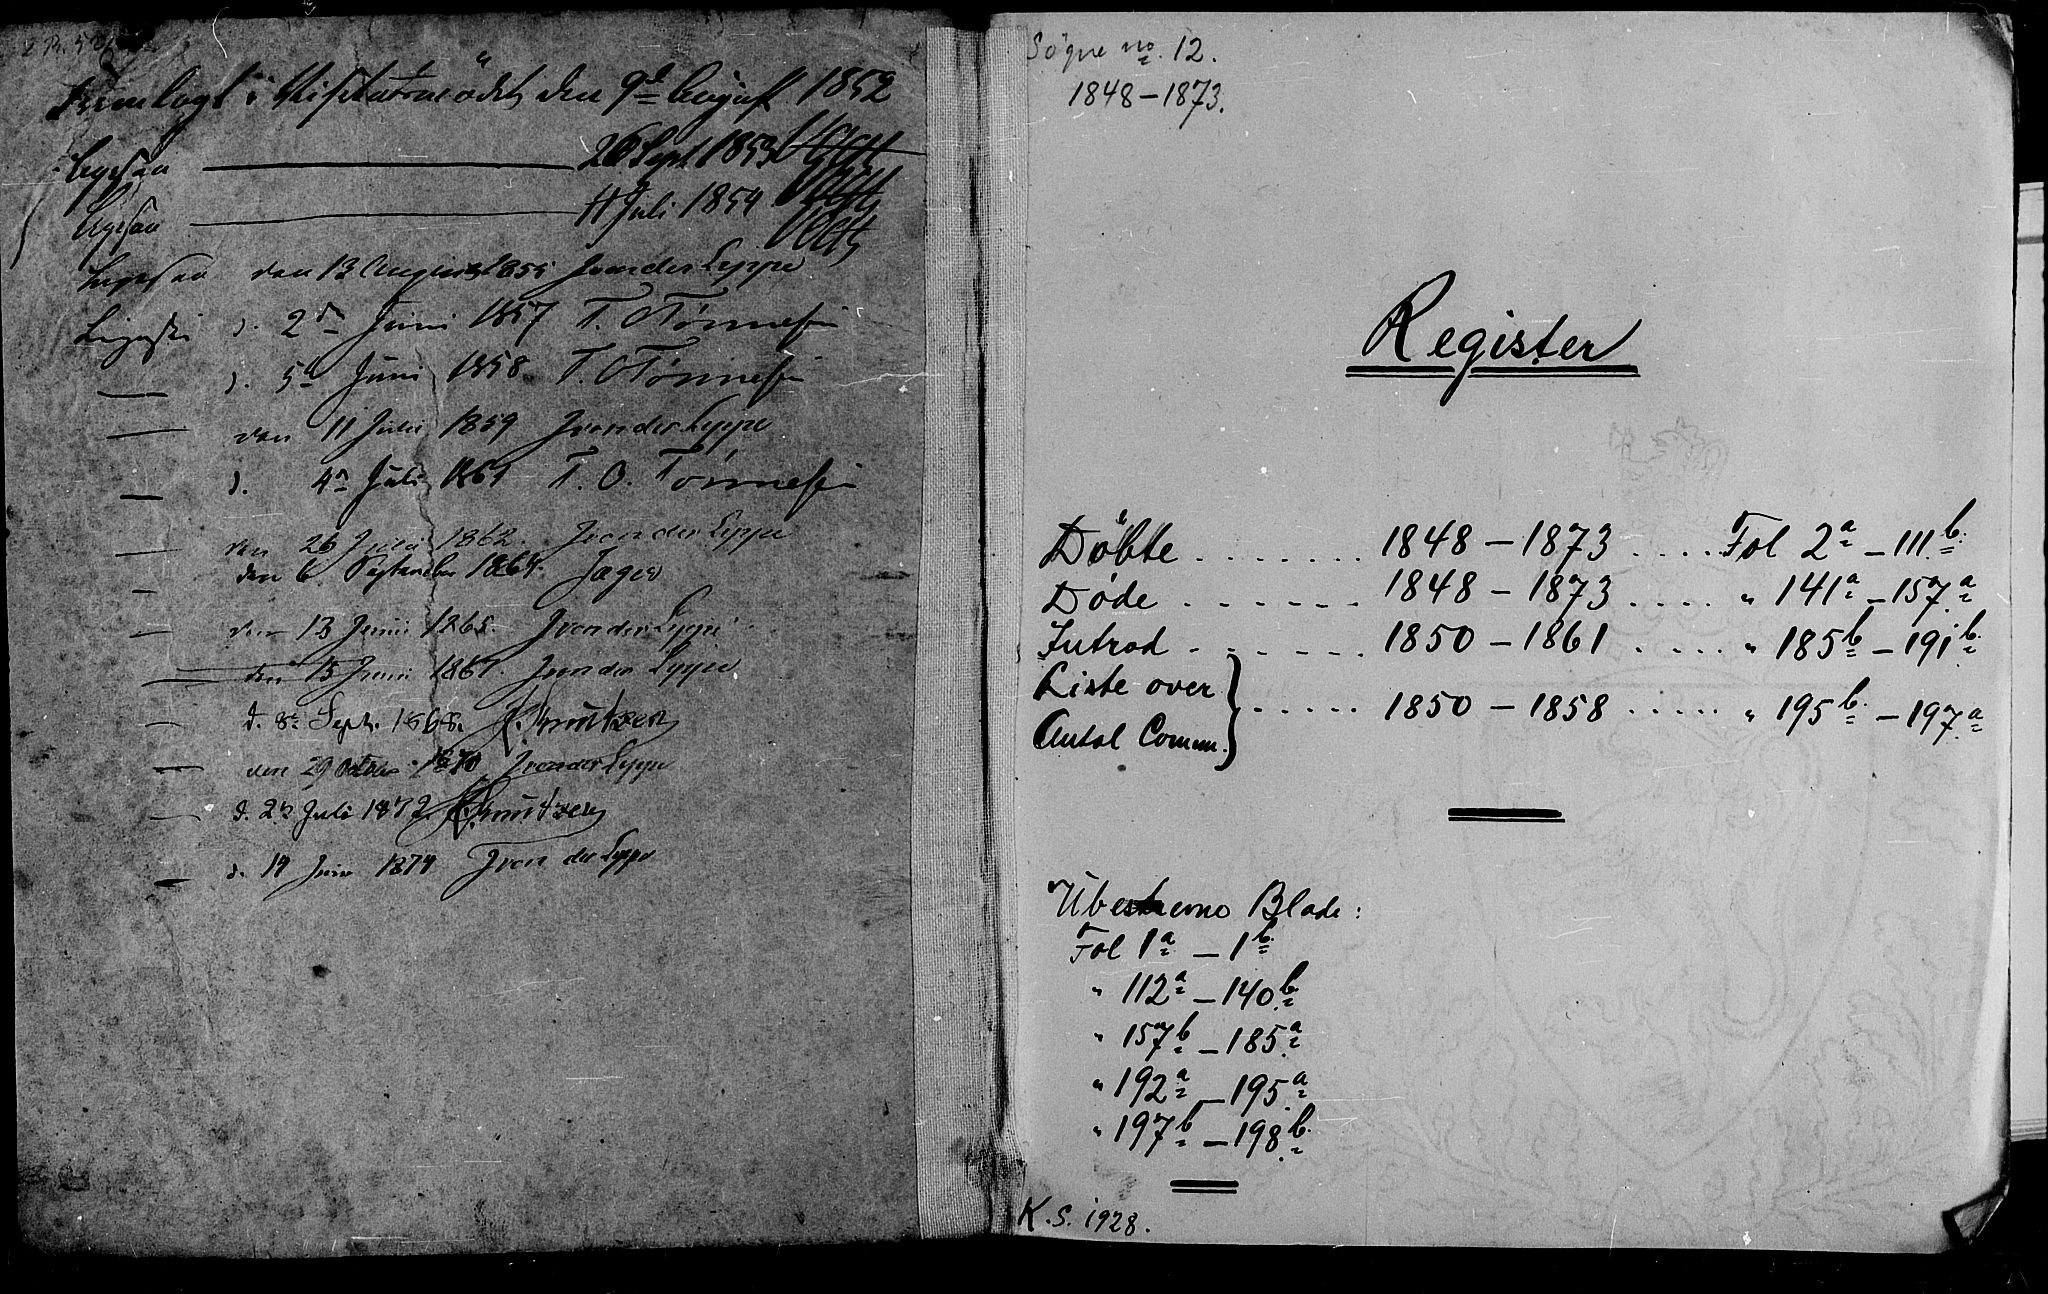 Fremlagt i Visitatsmødet den 9de August 1852
Ligesaa 26 Sept 1853
Ligesaa 11 Juli 1854
Ligesaa den 13 August 1855 J von der Lippe
Ligeså d. 2den Juni 1857 T. O Tønnessen
— d. 5te Juni 1858 T. O Tønnessen
— den 11 Juli 1859 J von der Lippe
— d. 4de Juli 1861 T. O. Tønnessen
— den 26 Juli 1862. J von der Lippe
— den 6 September 1864. Jæger
— den 13 Juni 1865. J von der Lippe
— den 15 Juni 1867. J von der Lippe
— d. 8de Sept. 1868. Knutzen
— den 29 October 1870 J von der Lippe
— d. 22 Juli 1872. Knutzen
— d. 14 Juni 1874 J von der Lippe
Søgne no. 12.
1848 – 1873.
Register
Döbte . . . . . . . 1848 – 1873 . . . . Fol 2a – 111b.
Døde . . . . . . . 1848 – 1873 . . . . " 141a – 157a
Introd . . . . . . . 1850 – 1861 . . . . " 185b – 191b.
Liste over
Antal Comm. } . . . . . . 1850 – 1858 . . . . . " 195b. – 197a
Ubeskrevne Blade:
Fol 1a – 1b.
" 112a – 140b.
" 157b – 185a
" 192a – 195a
" 197b – 198b.
K. S. 1928.